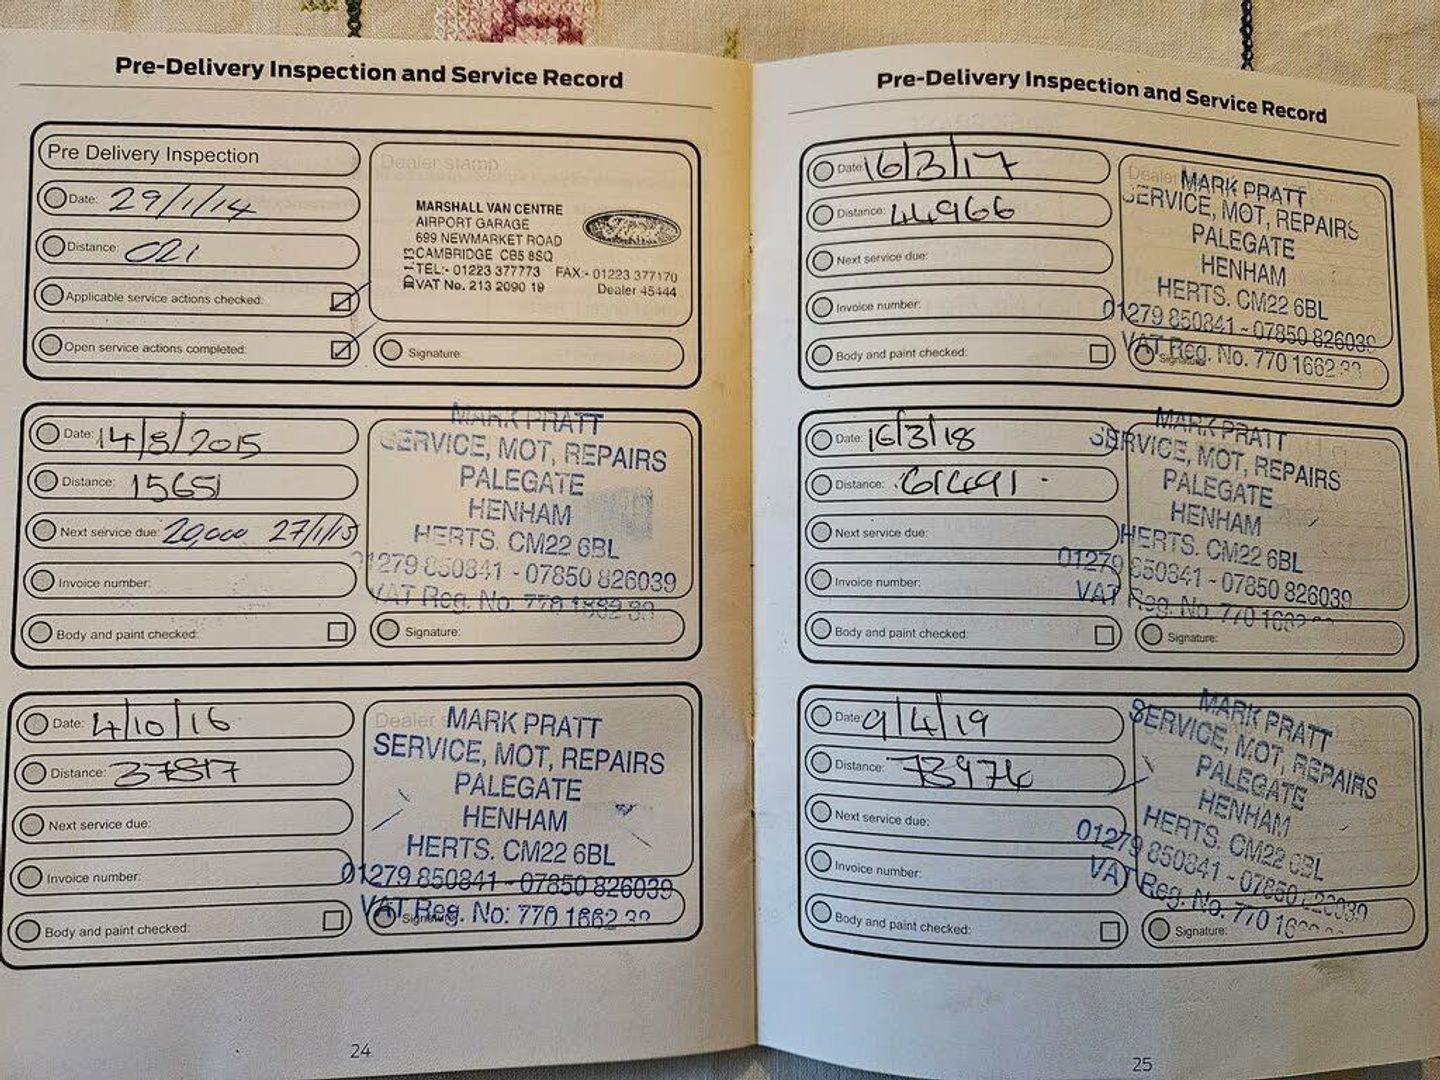 Pre-Delivery Inspection and Service Record
Pre Delivery Inspection
Date: 29/1/14
Distance: 021
Applicable service actions checked:
Open service actions completed:
Dealer stamp
MARSHALL VAN CENTRE
AIRPORT GARAGE
699 NEWMARKET ROAD
CAMBRIDGE CB5 8SQ
TEL:- 01223 377773 FAX:- 01223 377170
VAT No. 213 2090 19 Dealer 45444
Signature:
Date: 14/8/2015
Distance: 15651
Next service due: 20,000 27/1/15
Invoice number:
Body and paint checked:
MARK PRATT
SERVICE, MOT, REPAIRS
PALEGATE
HENHAM
HERTS. CM22 6BL
01279 850841 - 07850 826039
VAT Reg. No: 770
Signature:
Date: 4/10/16
Distance: 37817
Next service due:
Invoice number:
Body and paint checked:
Dealer
MARK PRATT
SERVICE, MOT, REPAIRS
PALEGATE
HENHAM
HERTS. CM22 6BL
01279 850841 - 07850 826039
VAT Reg. No: 770 1662
Signature
24
Pre-Delivery Inspection and Service Record
Date: 16/3/17
Distance: 44966
Next service due:
Invoice number:
Body and paint checked:
Dealer
MARK PRATT
SERVICE, MOT, REPAIRS
PALEGATE
HENHAM
HERTS. CM22 6BL
01279 850841 - 07850 826039
VAT Reg. No. 770 1662
Signature
Date: 16/3/18
Distance: 61491
Next service due:
Invoice number:
Body and paint checked:
MARK PRATT
SERVICE, MOT, REPAIRS
PALEGATE
HENHAM
HERTS. CM22 6BL
01279 850841 - 07850 826039
VAT Reg. No. 770
Signature:
Date: 9/4/19
Distance: 73974
Next service due:
Invoice number:
Body and paint checked:
MARK PRATT
SERVICE, MOT, REPAIRS
PALEGATE
HENHAM
HERTS. CM22 6BL
01279 850841 - 07850
VAT Reg. No. 770
Signature:
25